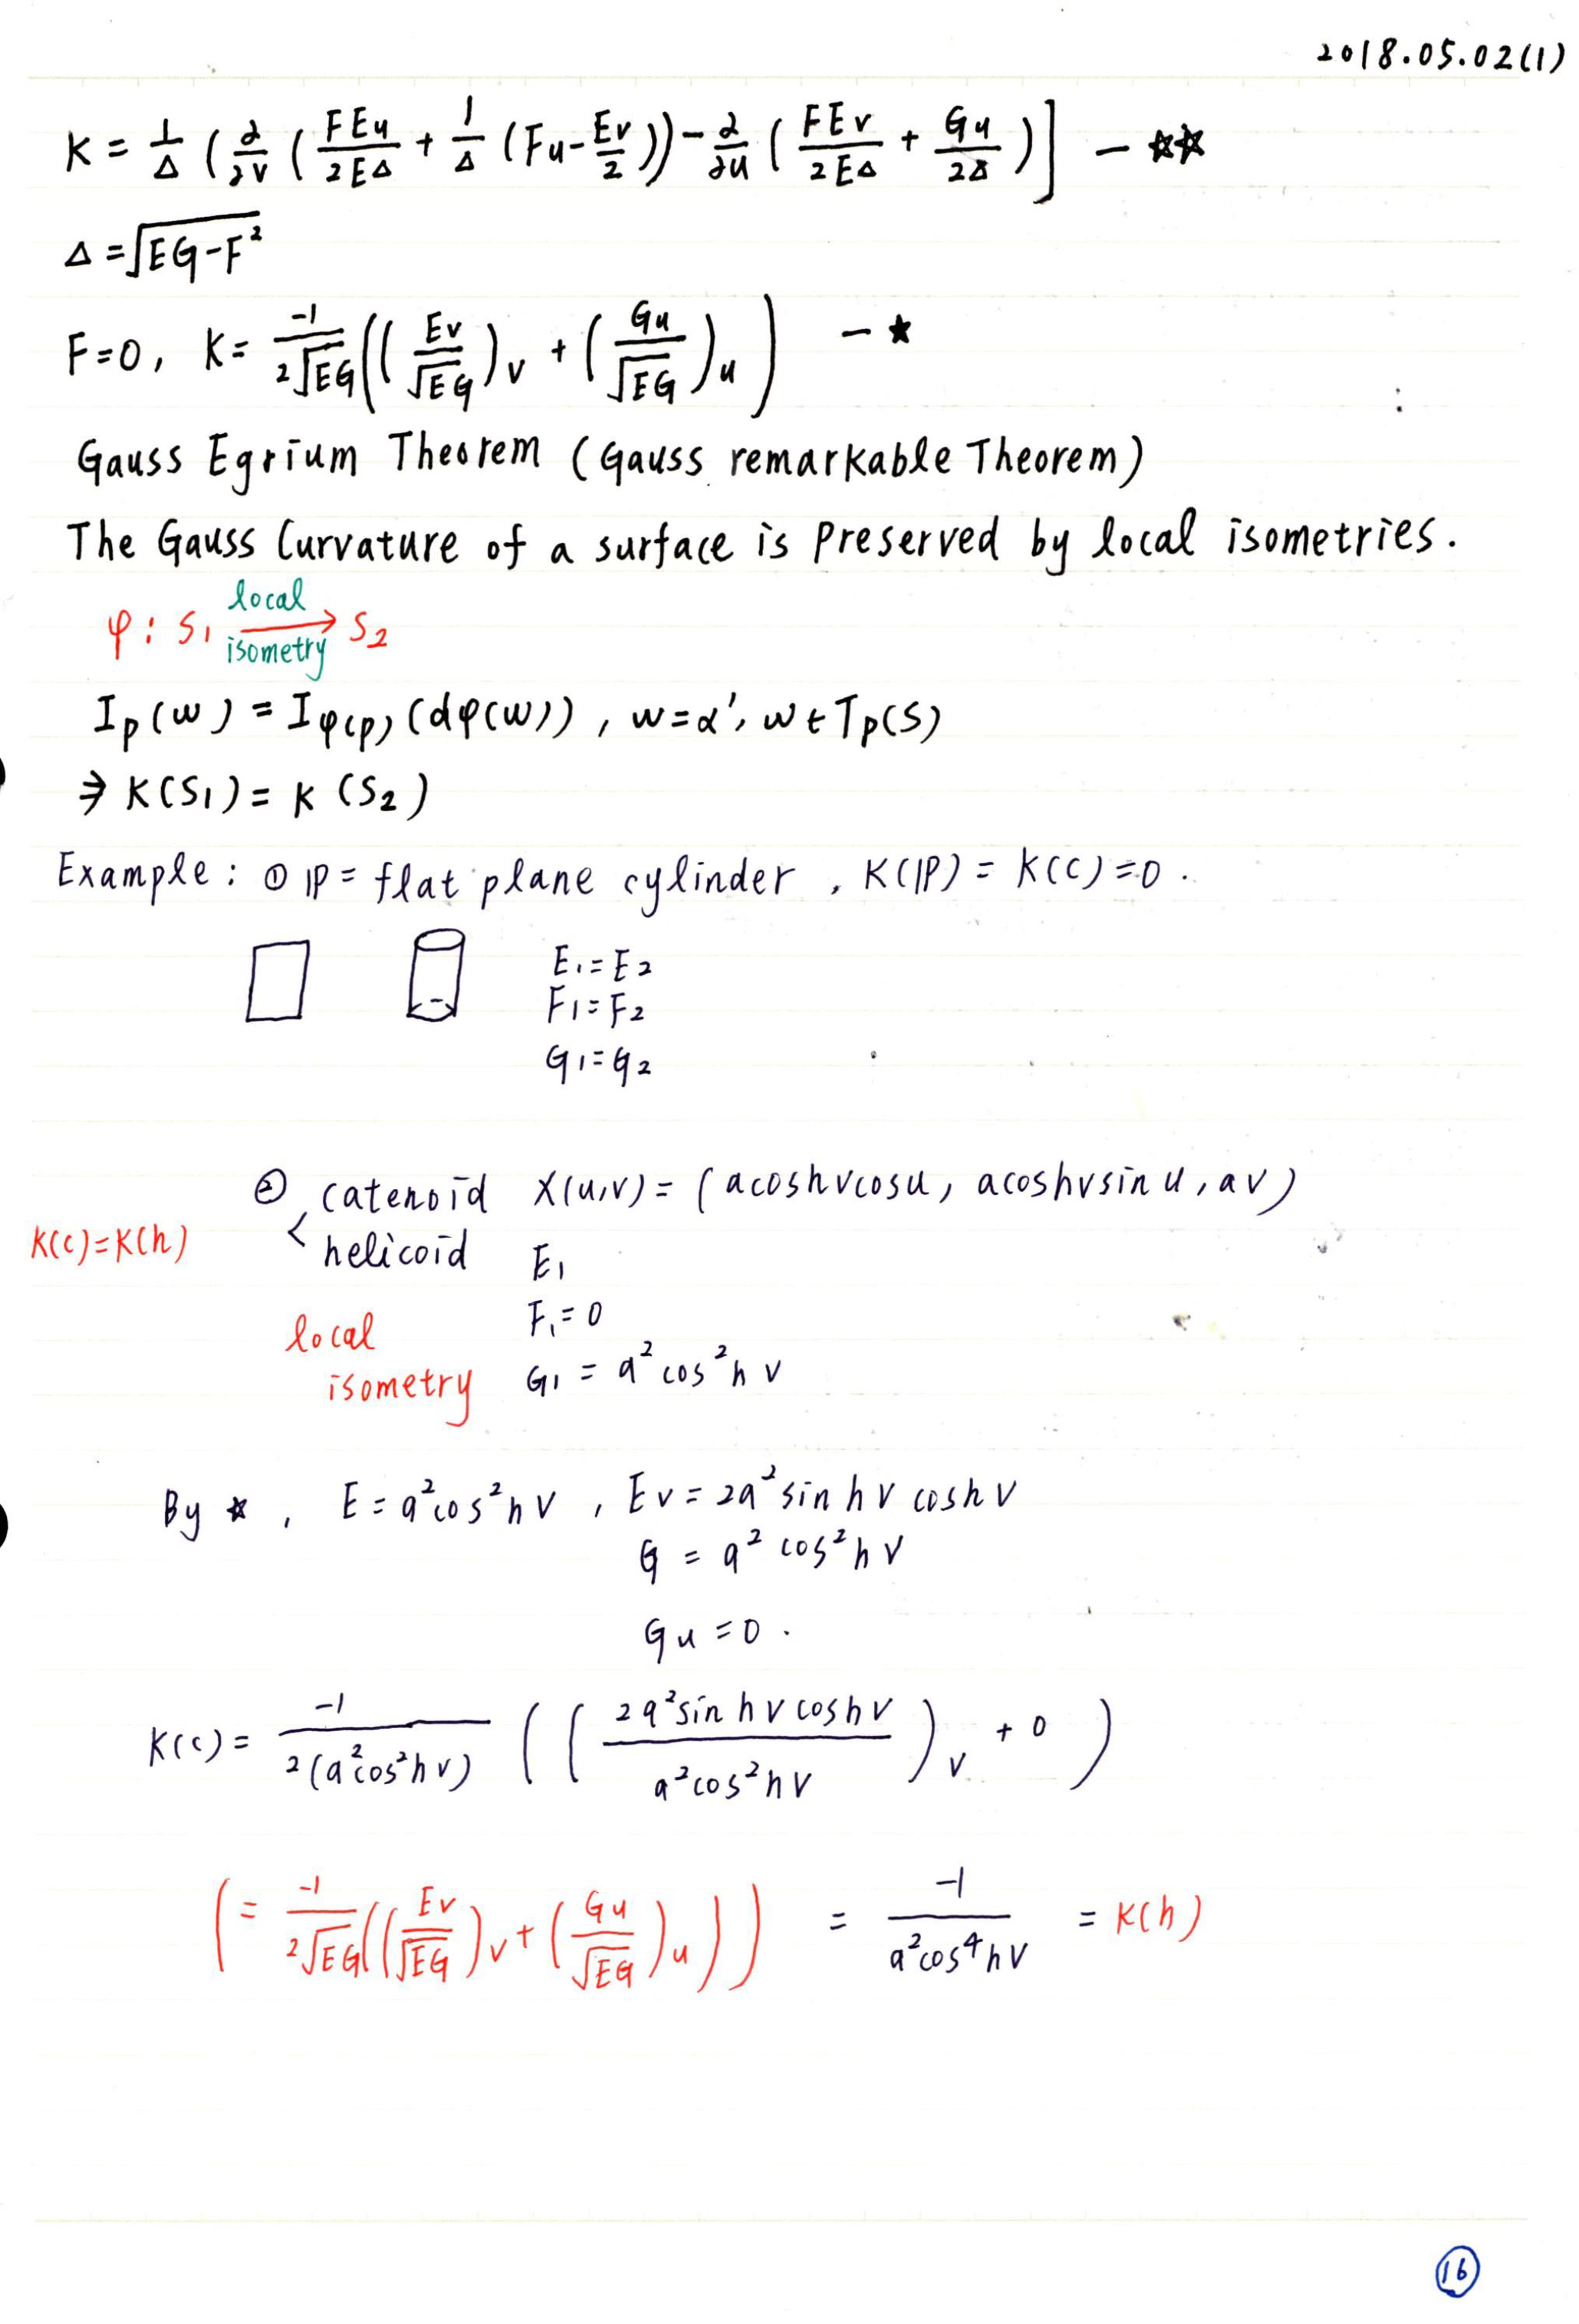 2018.05.02(1)
K = 1/Δ (∂/∂v (FEu/2EΔ + 1/Δ (Fu - Ev/2)) - ∂/∂u (FEv/2EΔ + Gu/2Δ)] - ☆☆
Δ = √(EG-F²)
F=0, K = -1/2√EG ((Ev/√EG)v + (Gu/√EG)u) - ★
Gauss Egrium Theorem (Gauss remarkable Theorem)
The Gauss Curvature of a surface is Preserved by local isometries.
φ: S₁ local isometry → S₂
Ip(w) = Iφ(p)(dφ(w)), w=α', w∈Tp(S)
⇒ K(S₁) = K(S₂)
Example: ① ℙ = flat plane cylinder, K(ℙ) = K(C) = 0.
E₁=E₂
F₁=F₂
G₁=G₂
② catenoid X(u,v) = (a coshv cosu, a coshv sin u, av)
K(c)=K(h) < helicoid E₁
local F₁=0
isometry G₁ = a²cos²h v
By ☆, E = a²cos²hv, Ev = 2a² sinhv coshv
G = a² cos²hv
Gu = 0.
K(c) = -1/2(a²cos²hv) ((2a²sinhv coshv/a²cos²hv)v + 0)
(= -1/2√EG ((Ev/√EG)v + (Gu/√EG)u)) = -1/a²cos⁴hv = K(h)
16